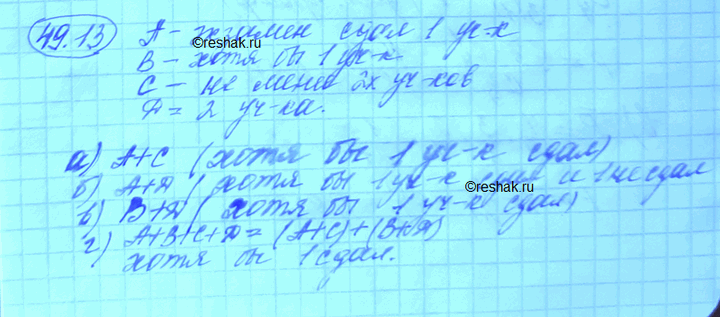 49.13 А – экзамен сдал 1 уч-к
©reshak.ru
В – хотя бы 1 уч-к
С – не менее 2х уч-ков
Д = 2 уч-ка.
а) А+С (хотя бы 1 уч-к сдал)
б) А+Д (хотя бы 1 уч-к сдал и 1 не сдал
©reshak.ru
в) В+Д (хотя бы 1 уч-к сдал)
г) А+В+С+Д = (А+С)+(В+Д)
хотя бы 1 сдал.